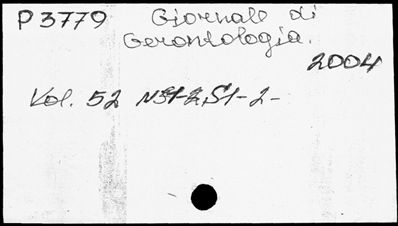 P3779 Giornale di
Gerontologia.
2004
Vol. 52 N31-2,S1-2-